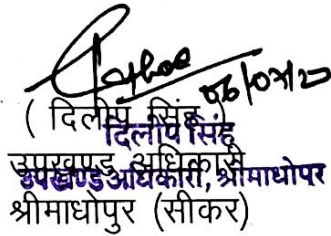 06/07/20
( दिलीप सिंह )
दिलीप सिंह
उपखण्ड अधिकारी
उपखण्ड अधिकारी, श्रीमाधोपुर
श्रीमाधोपुर (सीकर)